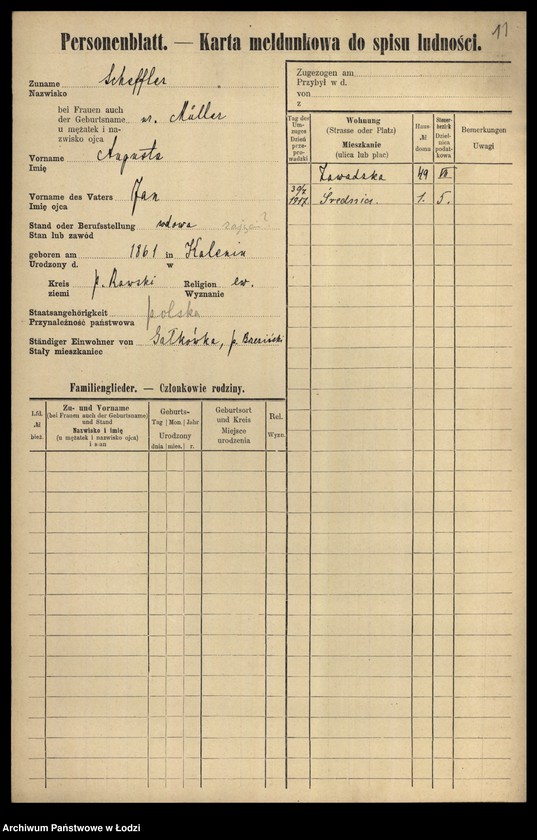 11
Personenblatt. — Karta meldunkowa do spisu ludności.
Zuname Scheffler
Nazwisko
bei Frauen auch
der Geburtsname ur. Müller
u mężatek i na-
zwisko ojca
Vorname Augusta
Imię
Vorname des Vaters Jan
Imię ojca
Stand oder Berufsstellung wdowa
Stan lub zawód
geboren am 1861 in Kalenin
Urodzony d. w
Kreis p. Rawski Religion ew.
ziemi Wyznanie
Staatsangehörigkeit polska
Przynależność państwowa
Ständiger Einwohner von Gałkówka, p. Brzeziński
Stały mieszkaniec
Familienglieder. — Członkowie rodziny.
Lfd. № bież.
Zu- und Vorname
(bei Frauen auch der Geburtsname)
und Stand
Nazwisko i imię
(u mężatek i nazwisko ojca)
i stan
Geburts-
Tag Mon. Jahr
Urodzony
dnia mies. r.
Geburtsort
und Kreis
Miejsce
urodzenia
Rel.
Wyzn.
Zugezogen am
Przybył w d.
von
z
Tag des
Um-
zuges
Dzień
prze-
prowadzki
Wohnung
(Strasse oder Platz)
Mieszkanie
(ulica lub plac)
Haus-
№
domu
Steuer-
bezirk
Dziel-
nica
podat-
kowa
Bemerkungen
Uwagi
Zawadzka 49 VII
30/V 1917. Średnia. 1. 5.
Archiwum Państwowe w Łodzi